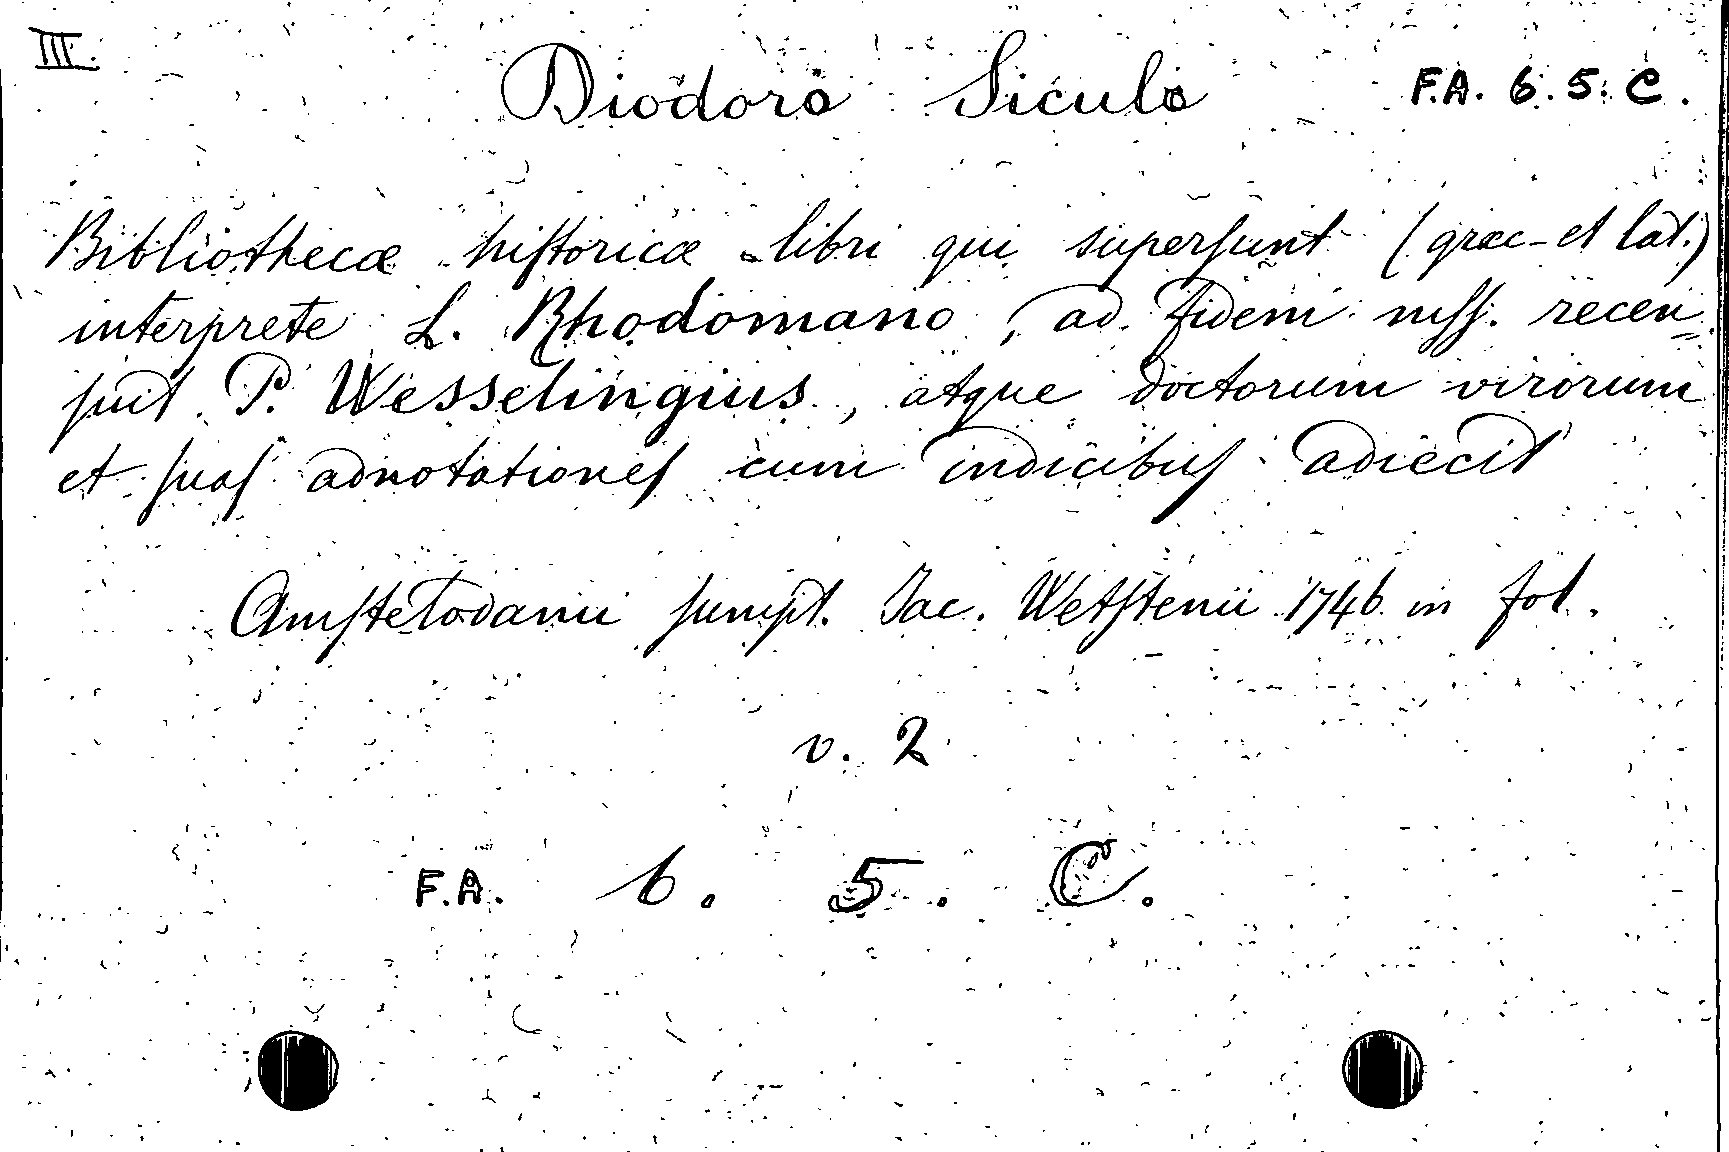 III.
Diodoro Siculo F.A. 6. 5. C.
Bibliothecæ hiſtoricæ libri qui superſunt (græc- et lat.)
interprete L. Rhodomano, ad fidem mſſ. recen=
ſuit P. Wesselingius, atque doctorum virorum
et ſuaſ adnotationeſ cum indicibuſ adiecit
Amſtelodami ſumpt. Jac. Wetſtenii 1746 in fol.
v. 2
F.A. 6. 5. C.